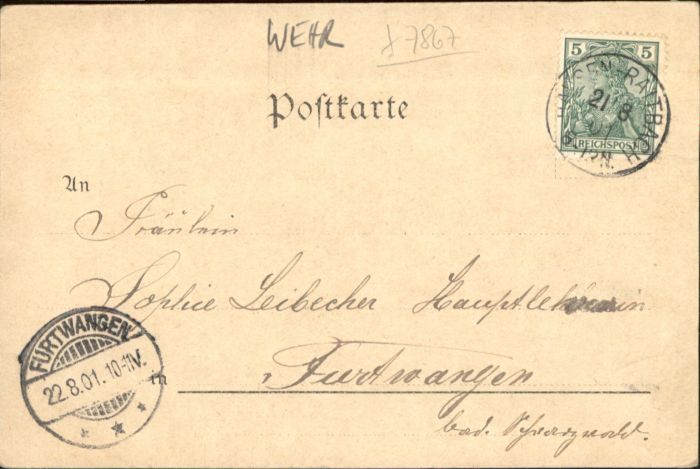 WEHR
5 5
HAUSEN-RAITBACH
21 8
01
REICHSPOST
Postkarte
An
Fräulein
Sophie Leibecher Hauptlehrerin
in Furtwangen
bad. Schwarzwald.
FURTWANGEN
22.8.01. 10-11V.